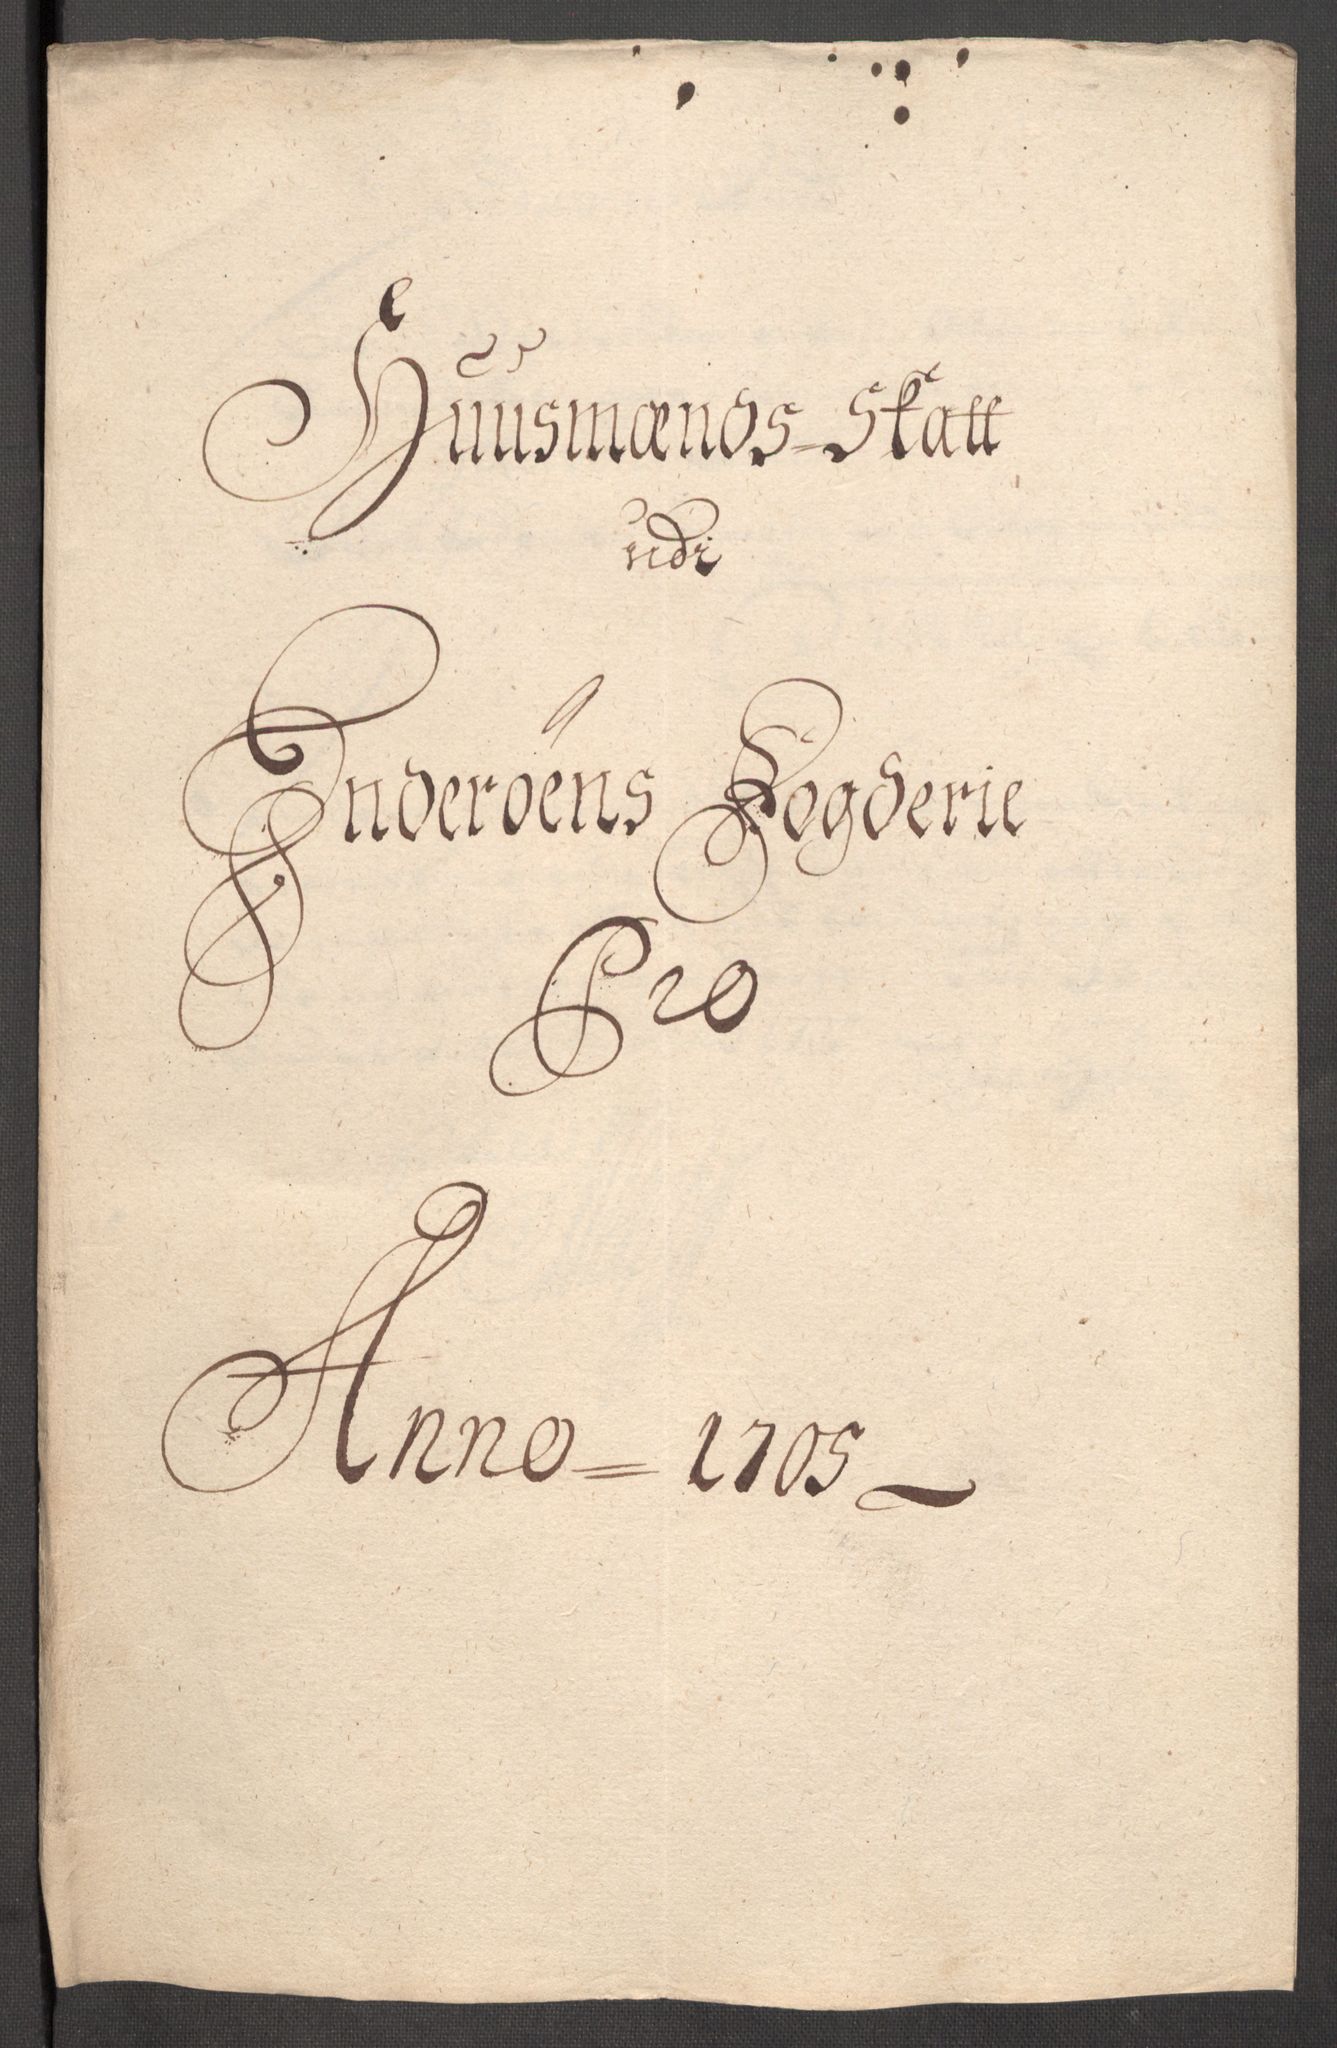 Huusmænds-Skatt
udi
Inderöens Fogderie
Pro
Anno = 1705